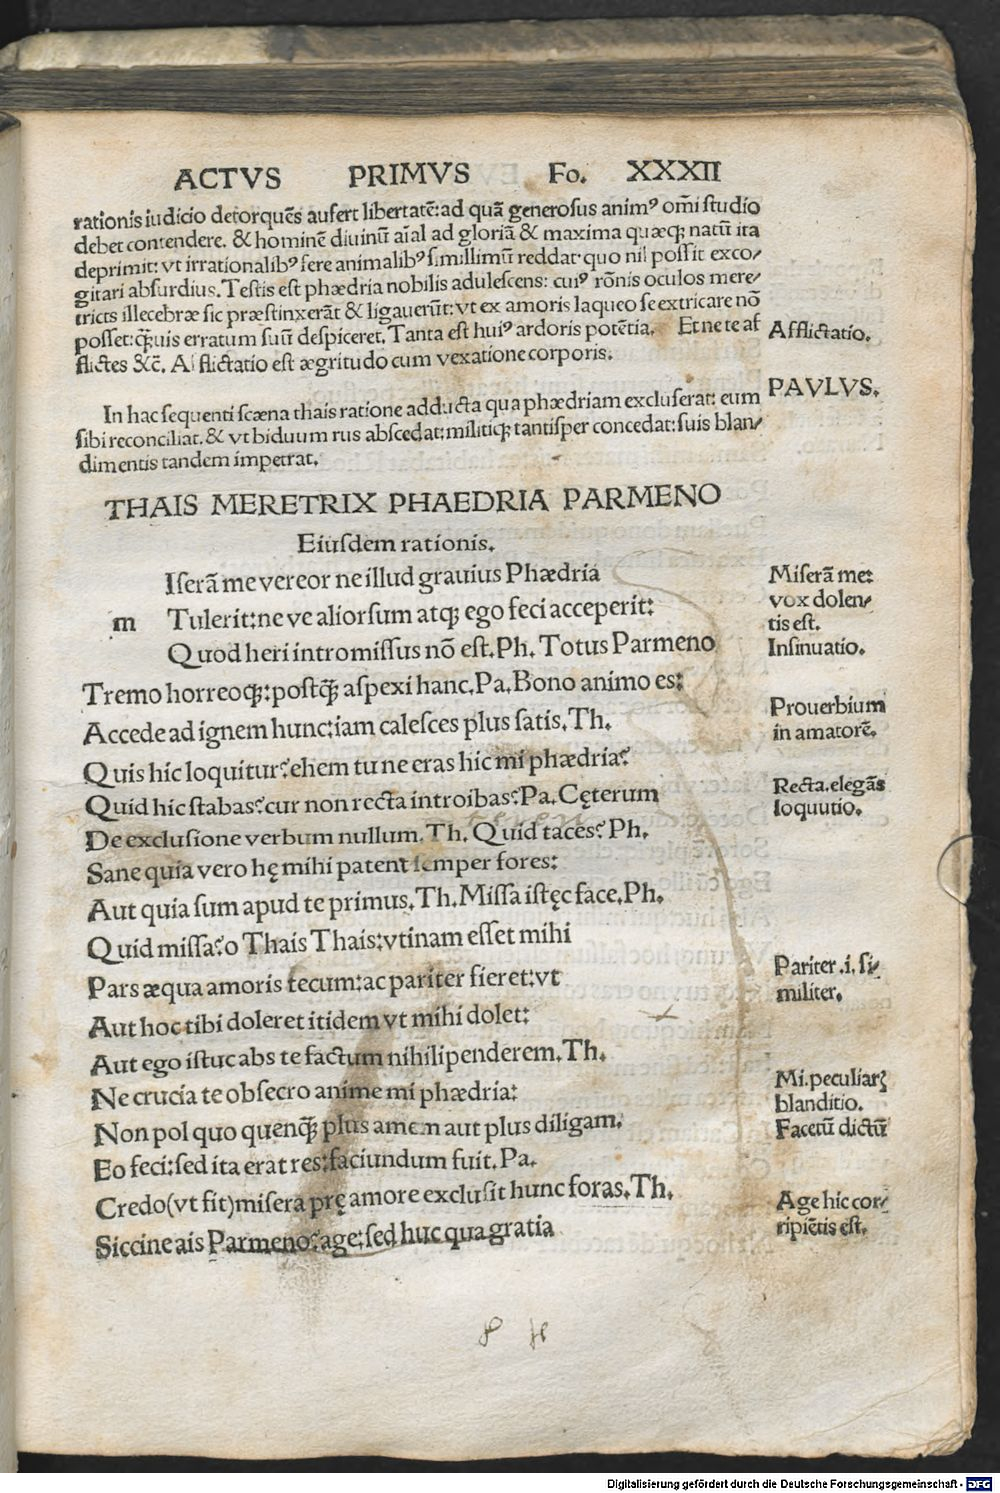 ACTVS PRIMVS Fo. XXXII
rationis iudicio detorquẽs aufert libertatẽ: ad quã generosus animꝰ om̃i studio
debet contendere. & hominẽ diuinũ aĩal ad gloriã & maxima quæqꝫ natũ ita
deprimit: vt irrationalibꝰ fere animalibꝰ simillimũ reddat· quo nil possit exco⸗
gitari absurdius. Testis est phædria nobilis adulescens: cuiꝰ rõnis oculos mere⸗
tricis illecebræ sic præstinxerãt & ligauerũt: vt ex amoris laqueo se extricare nõ
posset: qꝫ̃uis erratum suũ despiceret. Tanta est huiꝰ ardoris potẽtia. Et ne te af
flictes &c̃. Afflictatio est ægritudo cum vexatione corporis.
Afflictatio.
PAVLVS.
In hac sequenti scæna thais ratione adducta qua phædriam excluserat: eum
sibi reconciliat. & vt biduum rus abscedat: militiqꝫ tantisper concedat: suis blan⸗
dimentis tandem impetrat.
THAIS MERETRIX PHAEDRIA PARMENO
Eiusdem rationis.
m
Iserã me vereor ne illud grauius Phædria
Tulerit: ne ve aliorsum atqꝫ ego feci acceperit:
Quod heri intromissus nõ est. Ph. Totus Parmeno
Tremo horreoqꝫ: postqꝫ̃ aspexi hanc. Pa. Bono animo es:
Accede ad ignem hunc: iam calesces plus satis. Th.
Quis hic loquitur? ehem tu ne eras hic mi phædria?
Quid hic stabas? cur non recta introibas? Pa. Cęterum
De exclusione verbum nullum. Th. Quid taces? Ph.
Sane quia vero hę mihi patent semper fores:
Aut quia sum apud te primus. Th. Missa istęc face. Ph.
Quid missa? o Thais Thais: vtinam esset mihi
Pars æqua amoris tecum: ac pariter fieret: vt
Aut hoc tibi doleret itidem vt mihi dolet:
Aut ego istuc abs te factum nihilipenderem. Th.
Ne crucia te obsecro anime mi phædria:
Non pol quo quenqꝫ̃ plus amem aut plus diligam.
Eo feci: sed ita erat res: faciundum fuit. Pa.
Credo (vt fit) misera prę amore exclusit hunc foras. Th.
Siccine ais Parmeno? age: sed huc qua gratia
Miserã me:
vox dolen⸗
tis est.
Insinuatio.
Prouerbium
in amatorẽ.
Recta. elegãs
loquutio.
Pariter .i. si⸗
militer.
Mi. peculiarꝭ
blanditio.
Facetũ dictũ
Age hic cor⸗
ripiẽtis est.
Digitalisierung gefördert durch die Deutsche Forschungsgemeinschaft - DFG